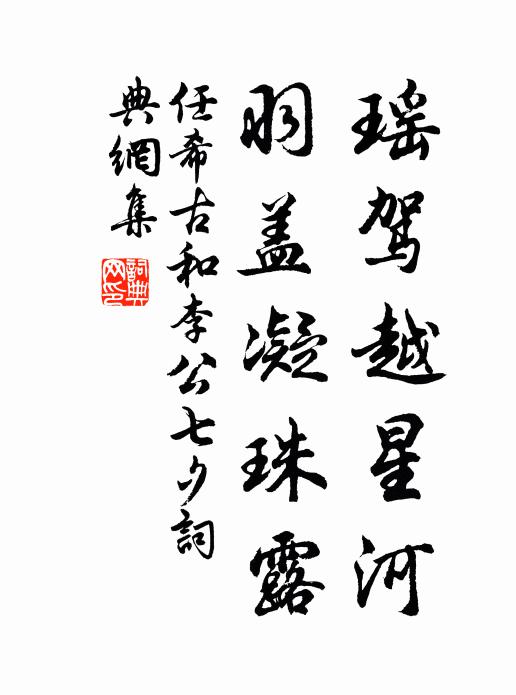 瑶驾越星河
羽盖凝珠露
任希古和李公七夕詞
典網集
詞典
网印